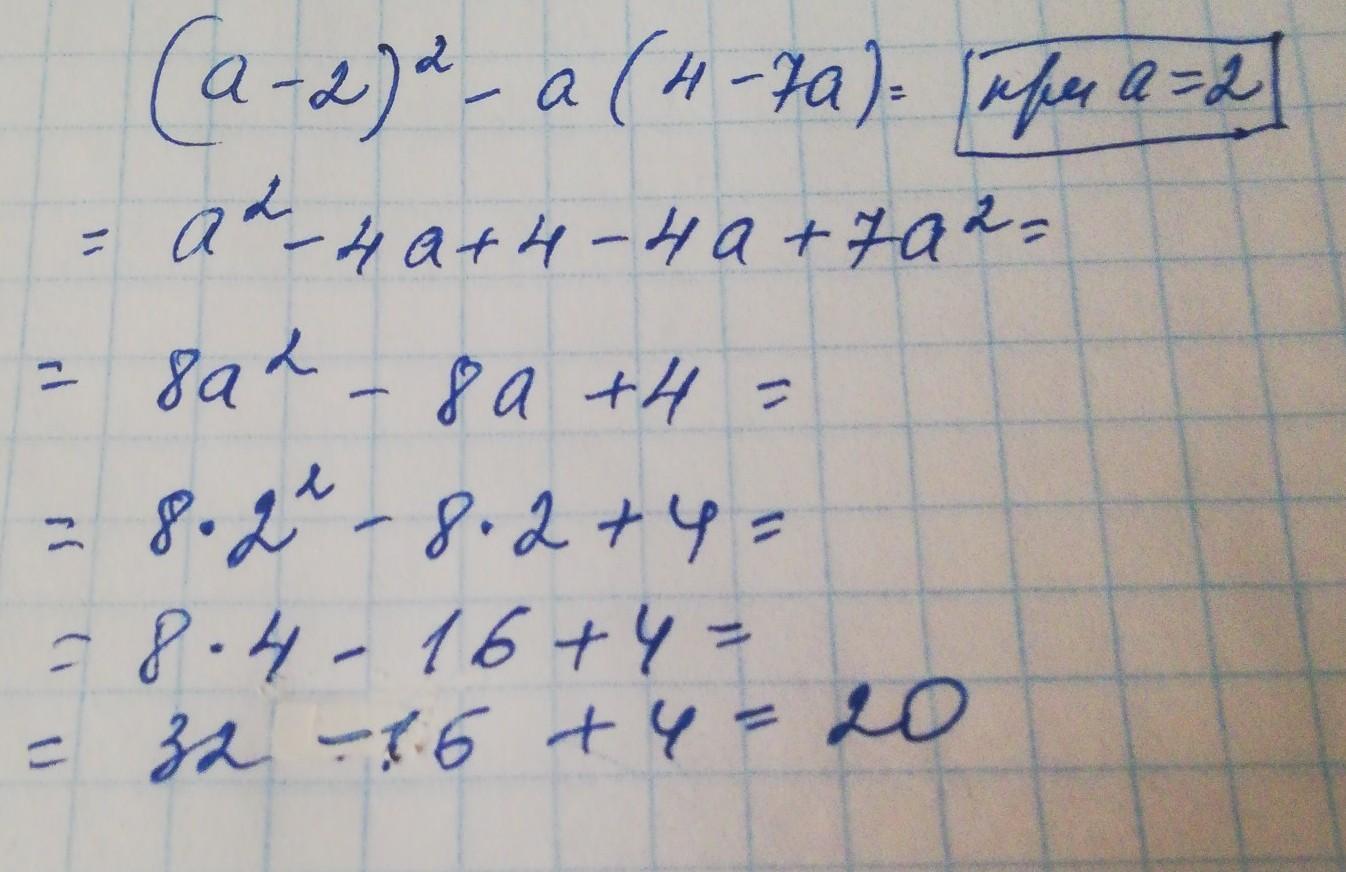 (a-2)² - a(4-7a)= при a=2
= a²-4a+4-4a+7a²=
= 8a² - 8a +4 =
= 8·2² - 8·2 +4 =
= 8·4 - 16 +4 =
= 32 -16 +4 = 20